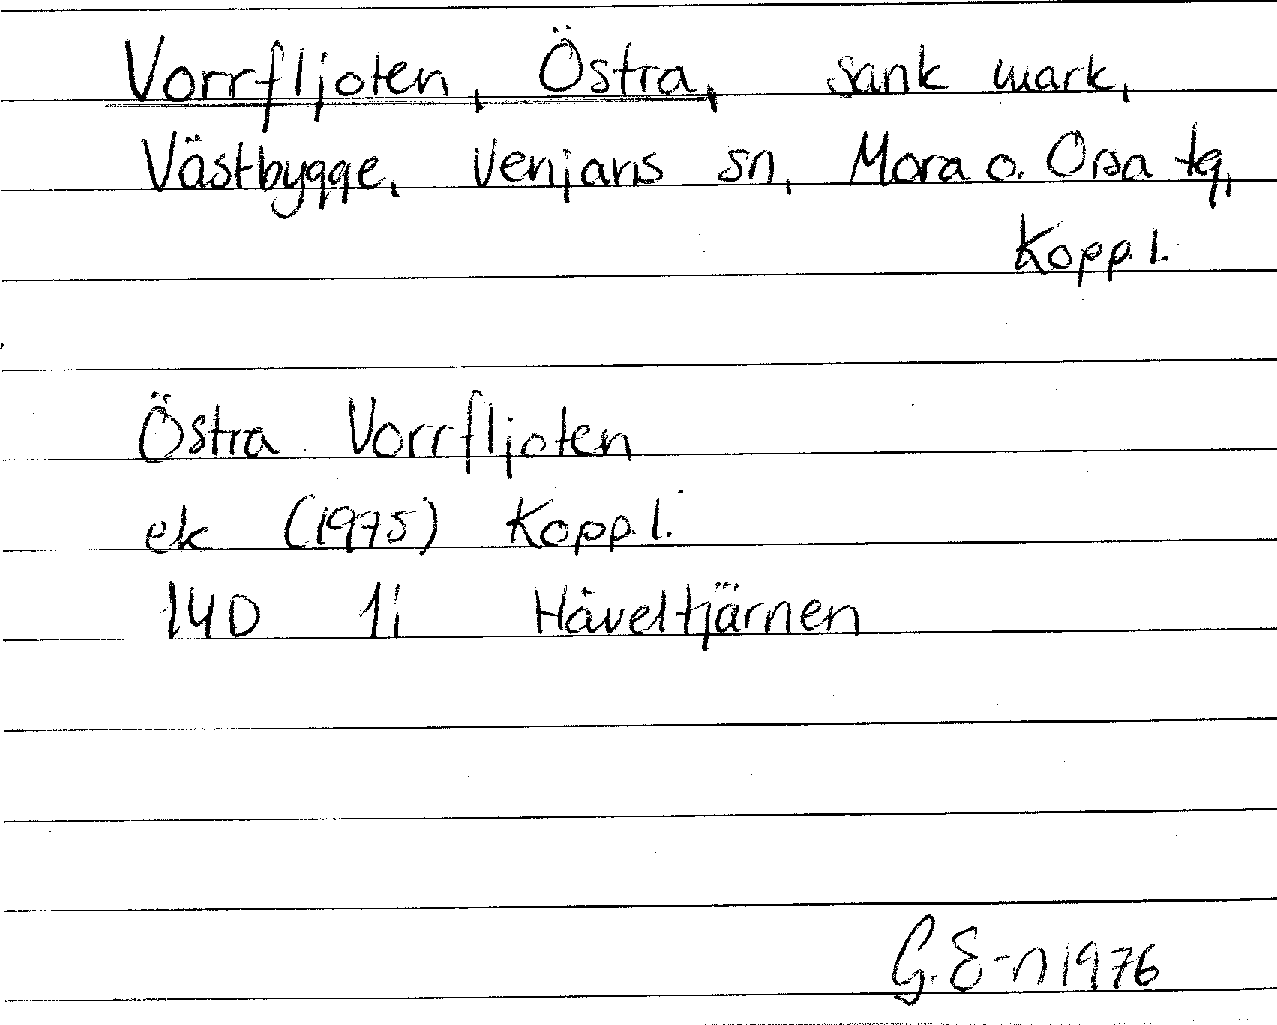 Vorrfljoten, Östra, sank mark,
Västbygge, Venjans sn, Mora o. Orsa tg,
Kopp. l.
Östra Vorrfljoten
ek (1975) Kopp. l.
14D 1i Håveltjärnen
G. E-n 1976